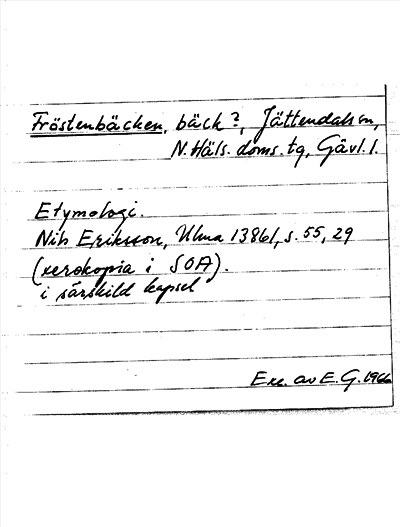 Fröstenbäcken, bäck?, Jättendals sn,
N. Häls. doms. tg, Gävl. l.
Etymologi.
Nils Eriksson, Ulma 13861, s. 55, 29
(xerokopia i SOA).
i särskild kapsel
Exc. av E. G. 1966